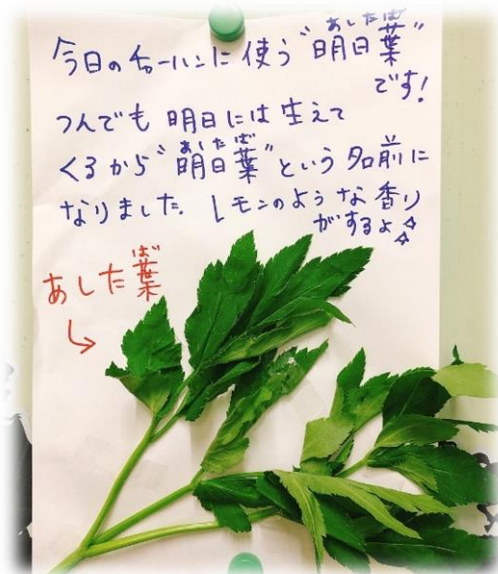 今日のチャーハンに使う“明日葉”
あしたば
です!
つんでも明日には生えて
くるから“明日葉”という名前に
あしたば
なりました。レモンのような香り
がするよ☆
あした葉
ば